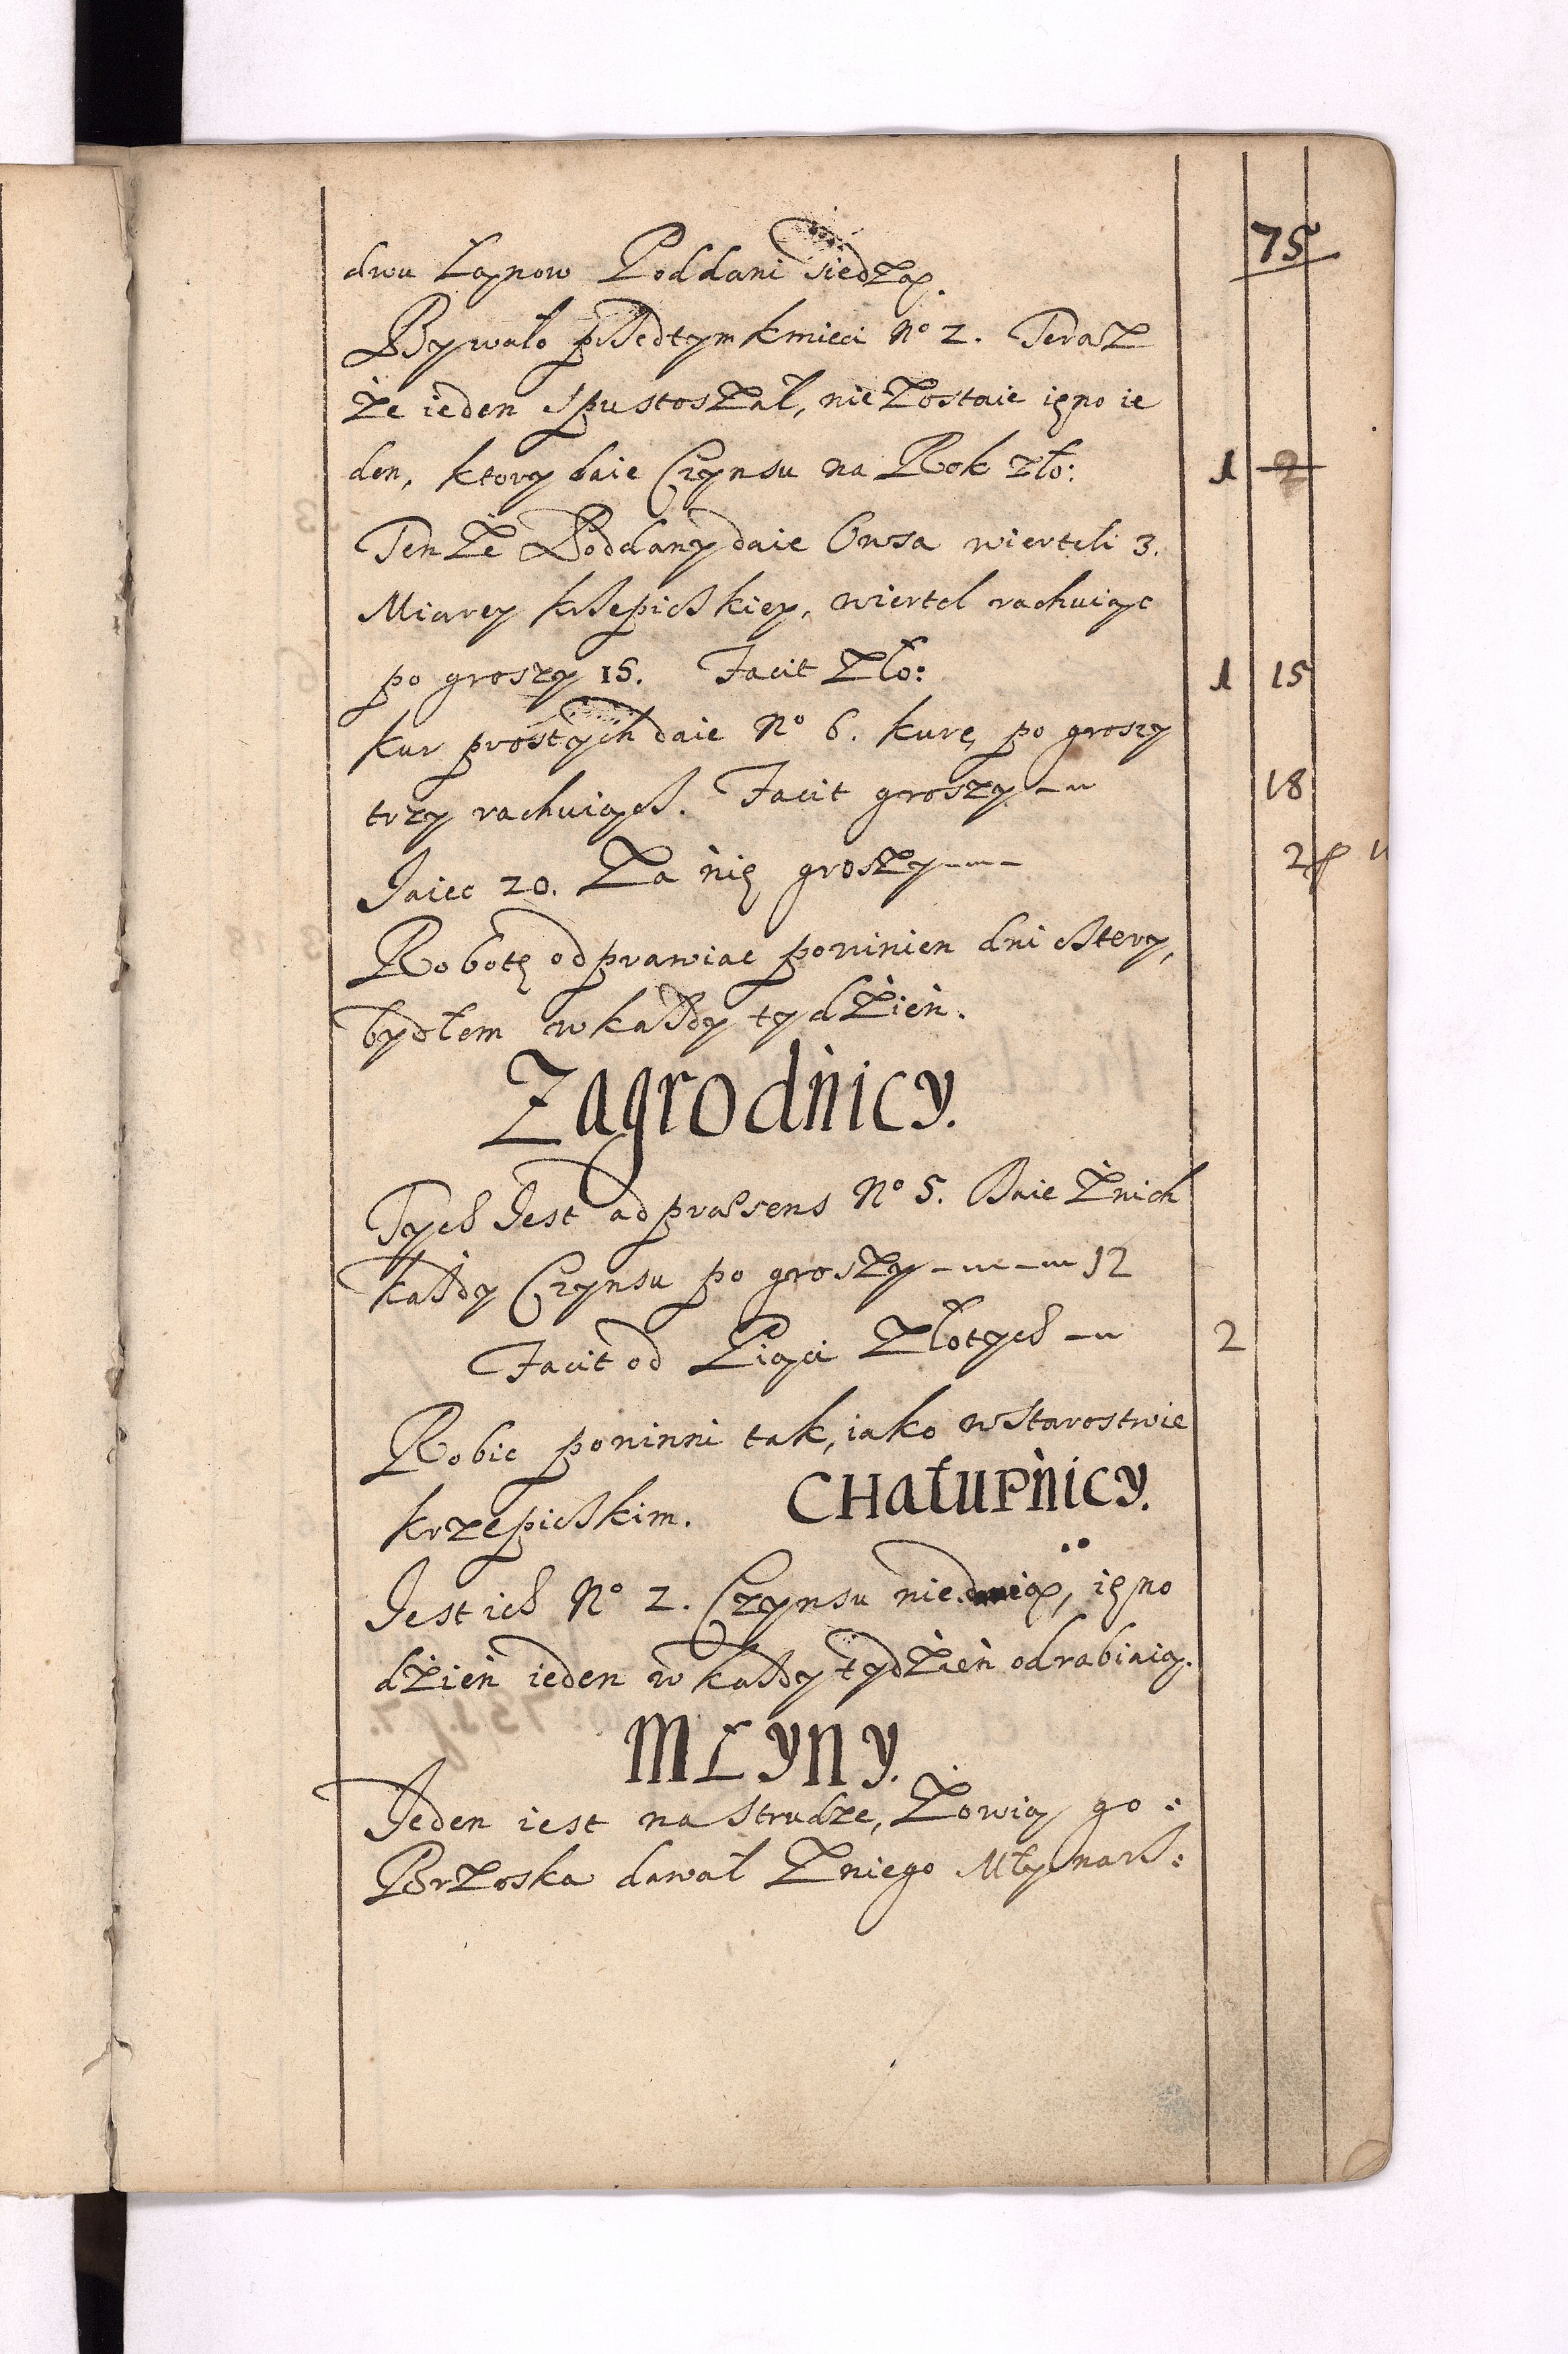 75
dwu Łanow Poddani siedzą.
Bywało przedtym kmieci No 2. Teraz
że ieden spustoszał, nie zostaie ięno ie
den, ktory daie Czynsu na Rok zło: 1
Tenże Poddany daie Owsa wierteli 3.
Miarey krzepickiey, wiertel rachuiąc
po groszy 15. Facit Zło: 1 15
kur prostych daie No 6. kurę po groszy
trzy rachuiąch. Facit groszy 18
Jaiec 20. Za nię groszy 2
Robotę odprawiac powinien dni cztery,
bydłem w każdy tydzień.
Zagrodnicy.
Tych Jest ad praesens No 5. Daie z nich
każdy Czynsu po groszy 12
Facit od Piąci Złotych 2
Robic powinni tak, iako w Starostwie
krzepickim. CHałupnicy.
Jest ich No 2. Czynsu nie daią, ięno
dzień ieden w każdy tydzień odrabiaią.
MŁYNY.
Jeden iest na Strudze, Zowią go:
Brzoska dawał z niego Młynarz: